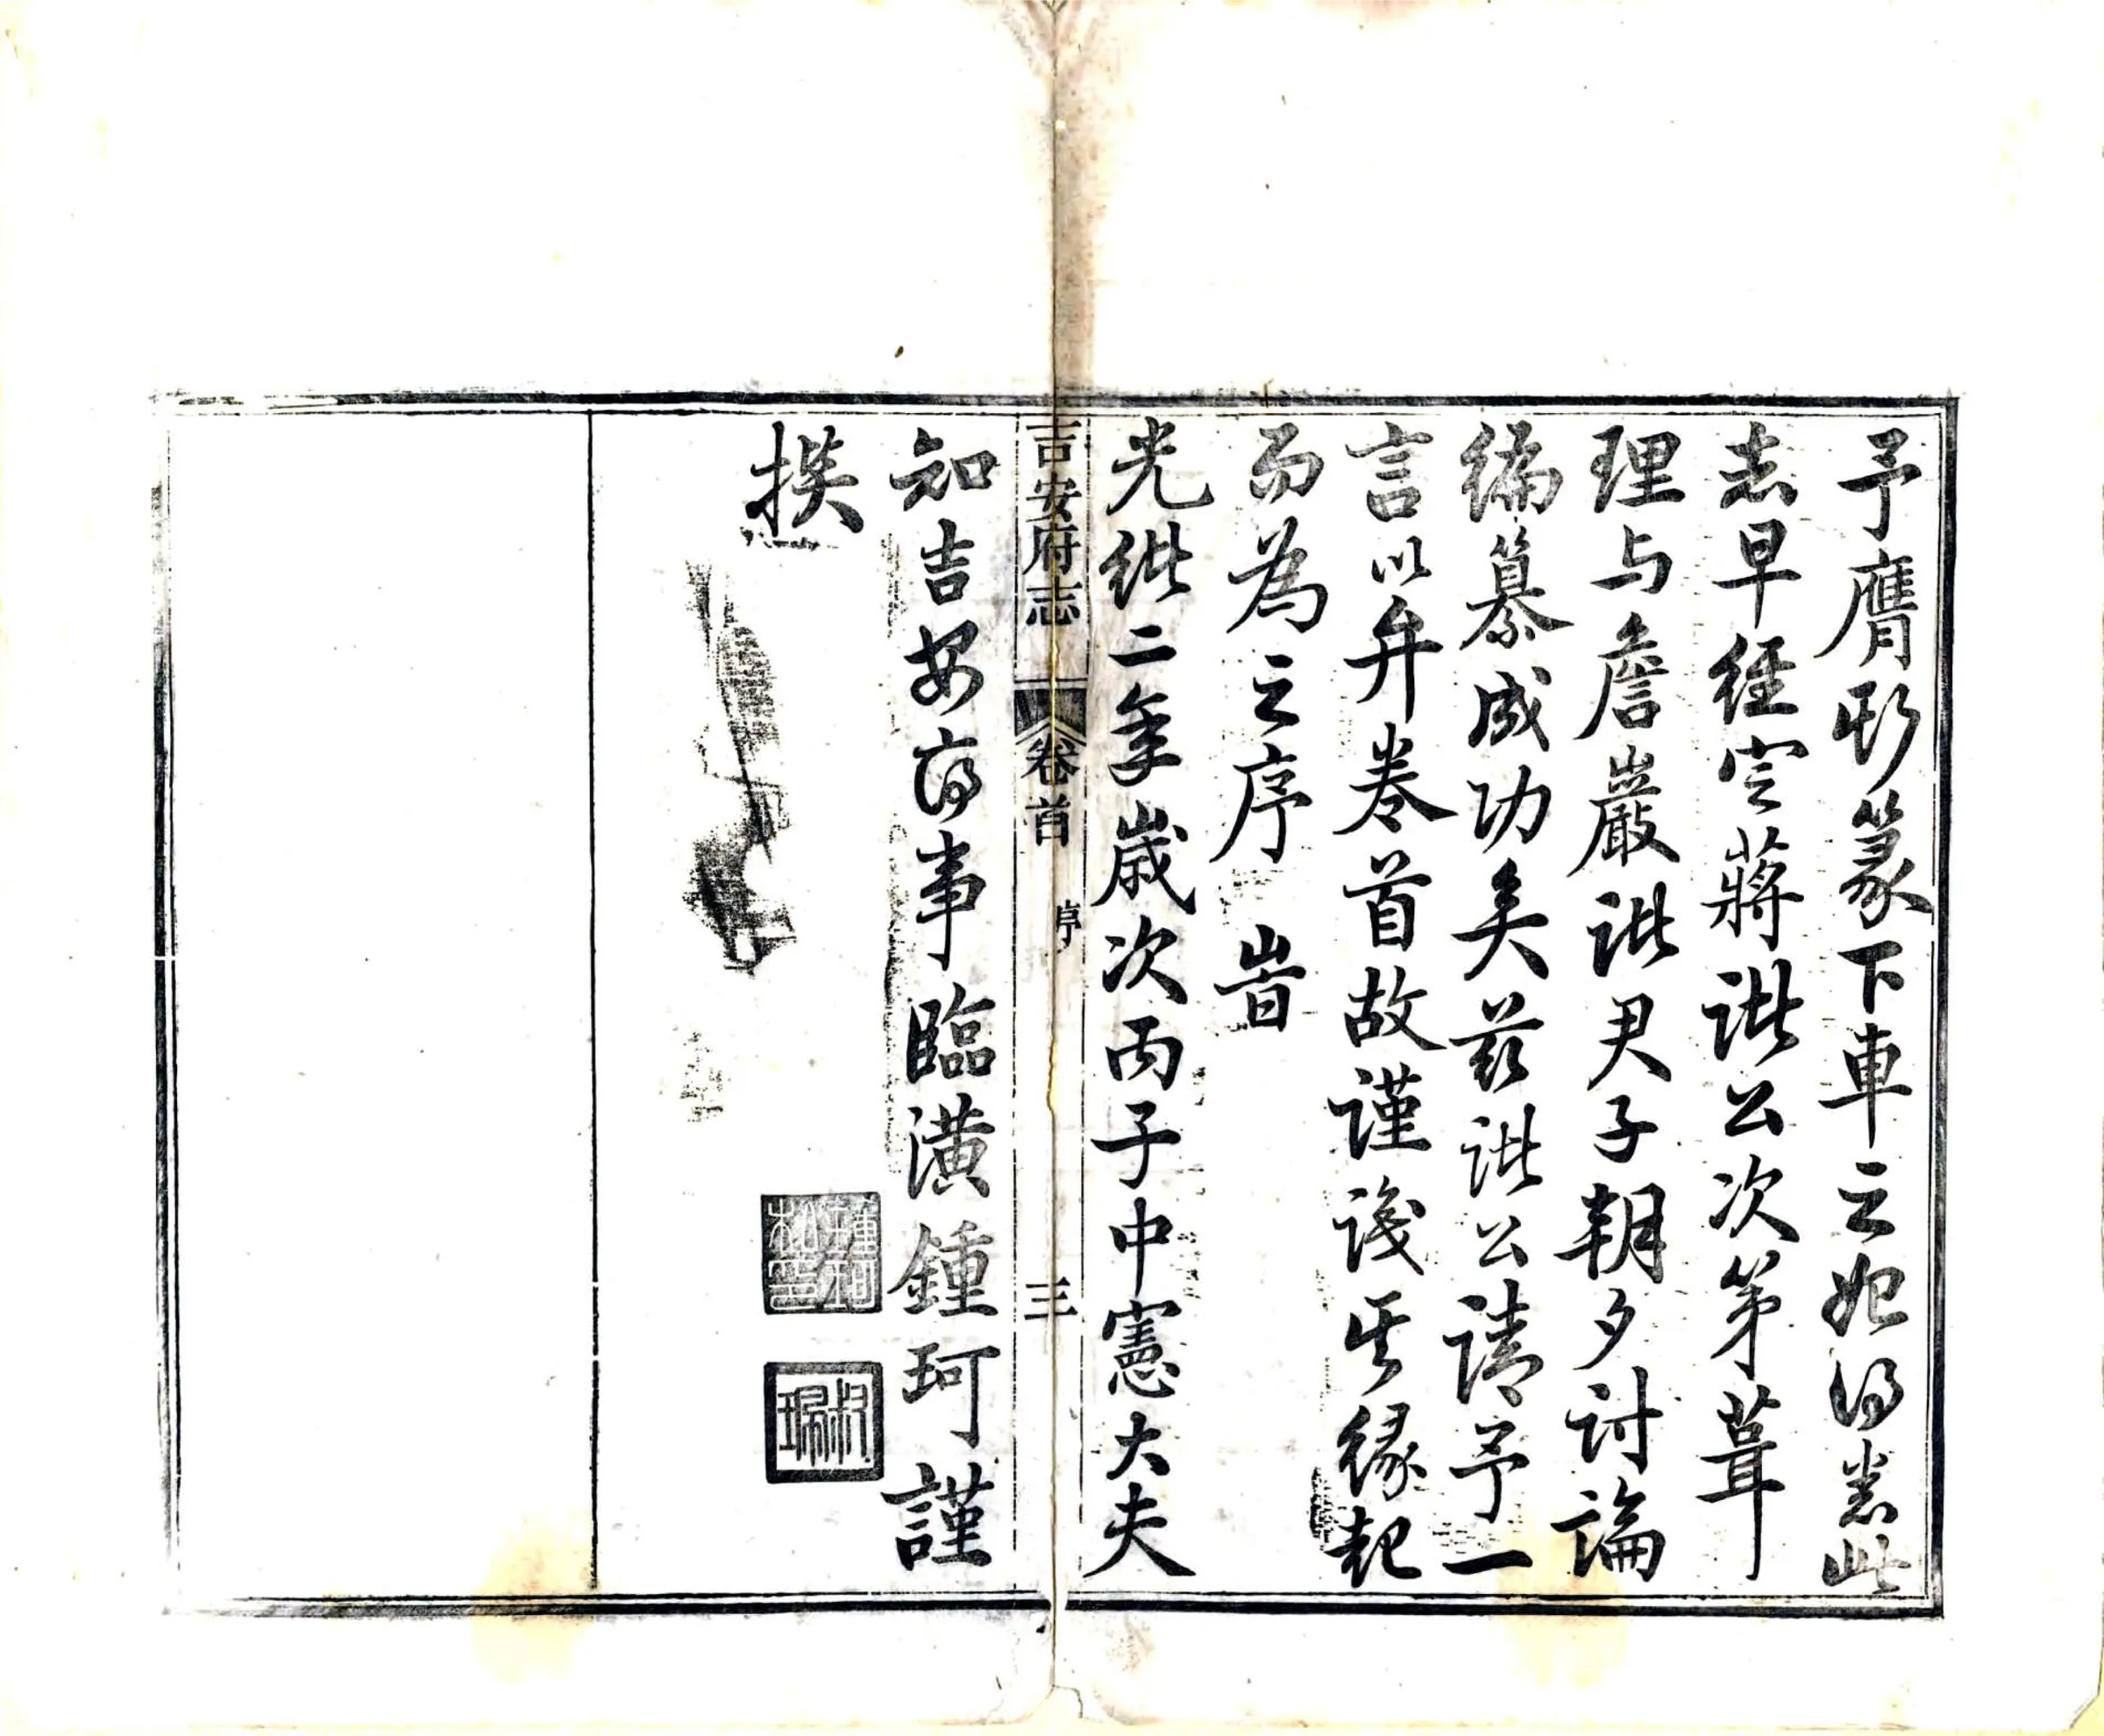 予膺篆下車之始得悉此
志早經定蔣諸公次第葺
理与詹嚴諸君子朝夕討論
編纂成功矣茲諸公請予一
言以弁卷首故謹識其緣起
而為之序 旹
光緒二年歲次丙子中憲大夫
吉安府志 卷首 序 三
知吉安府事臨潢鍾珂謹
撰